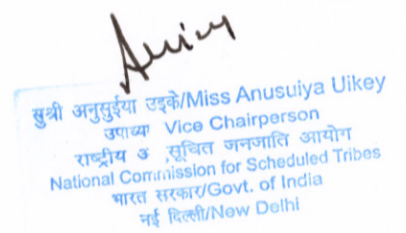 सुश्री अनुसुईया उइके/Miss Anusuiya Uikey
Vice Chairperson
राष्ट्रीय अ ,सूचित जनजाति आयोग
National Commission for Scheduled Tribes
भारत सरकार/Govt. of India
नई दिल्ली/New Delhi